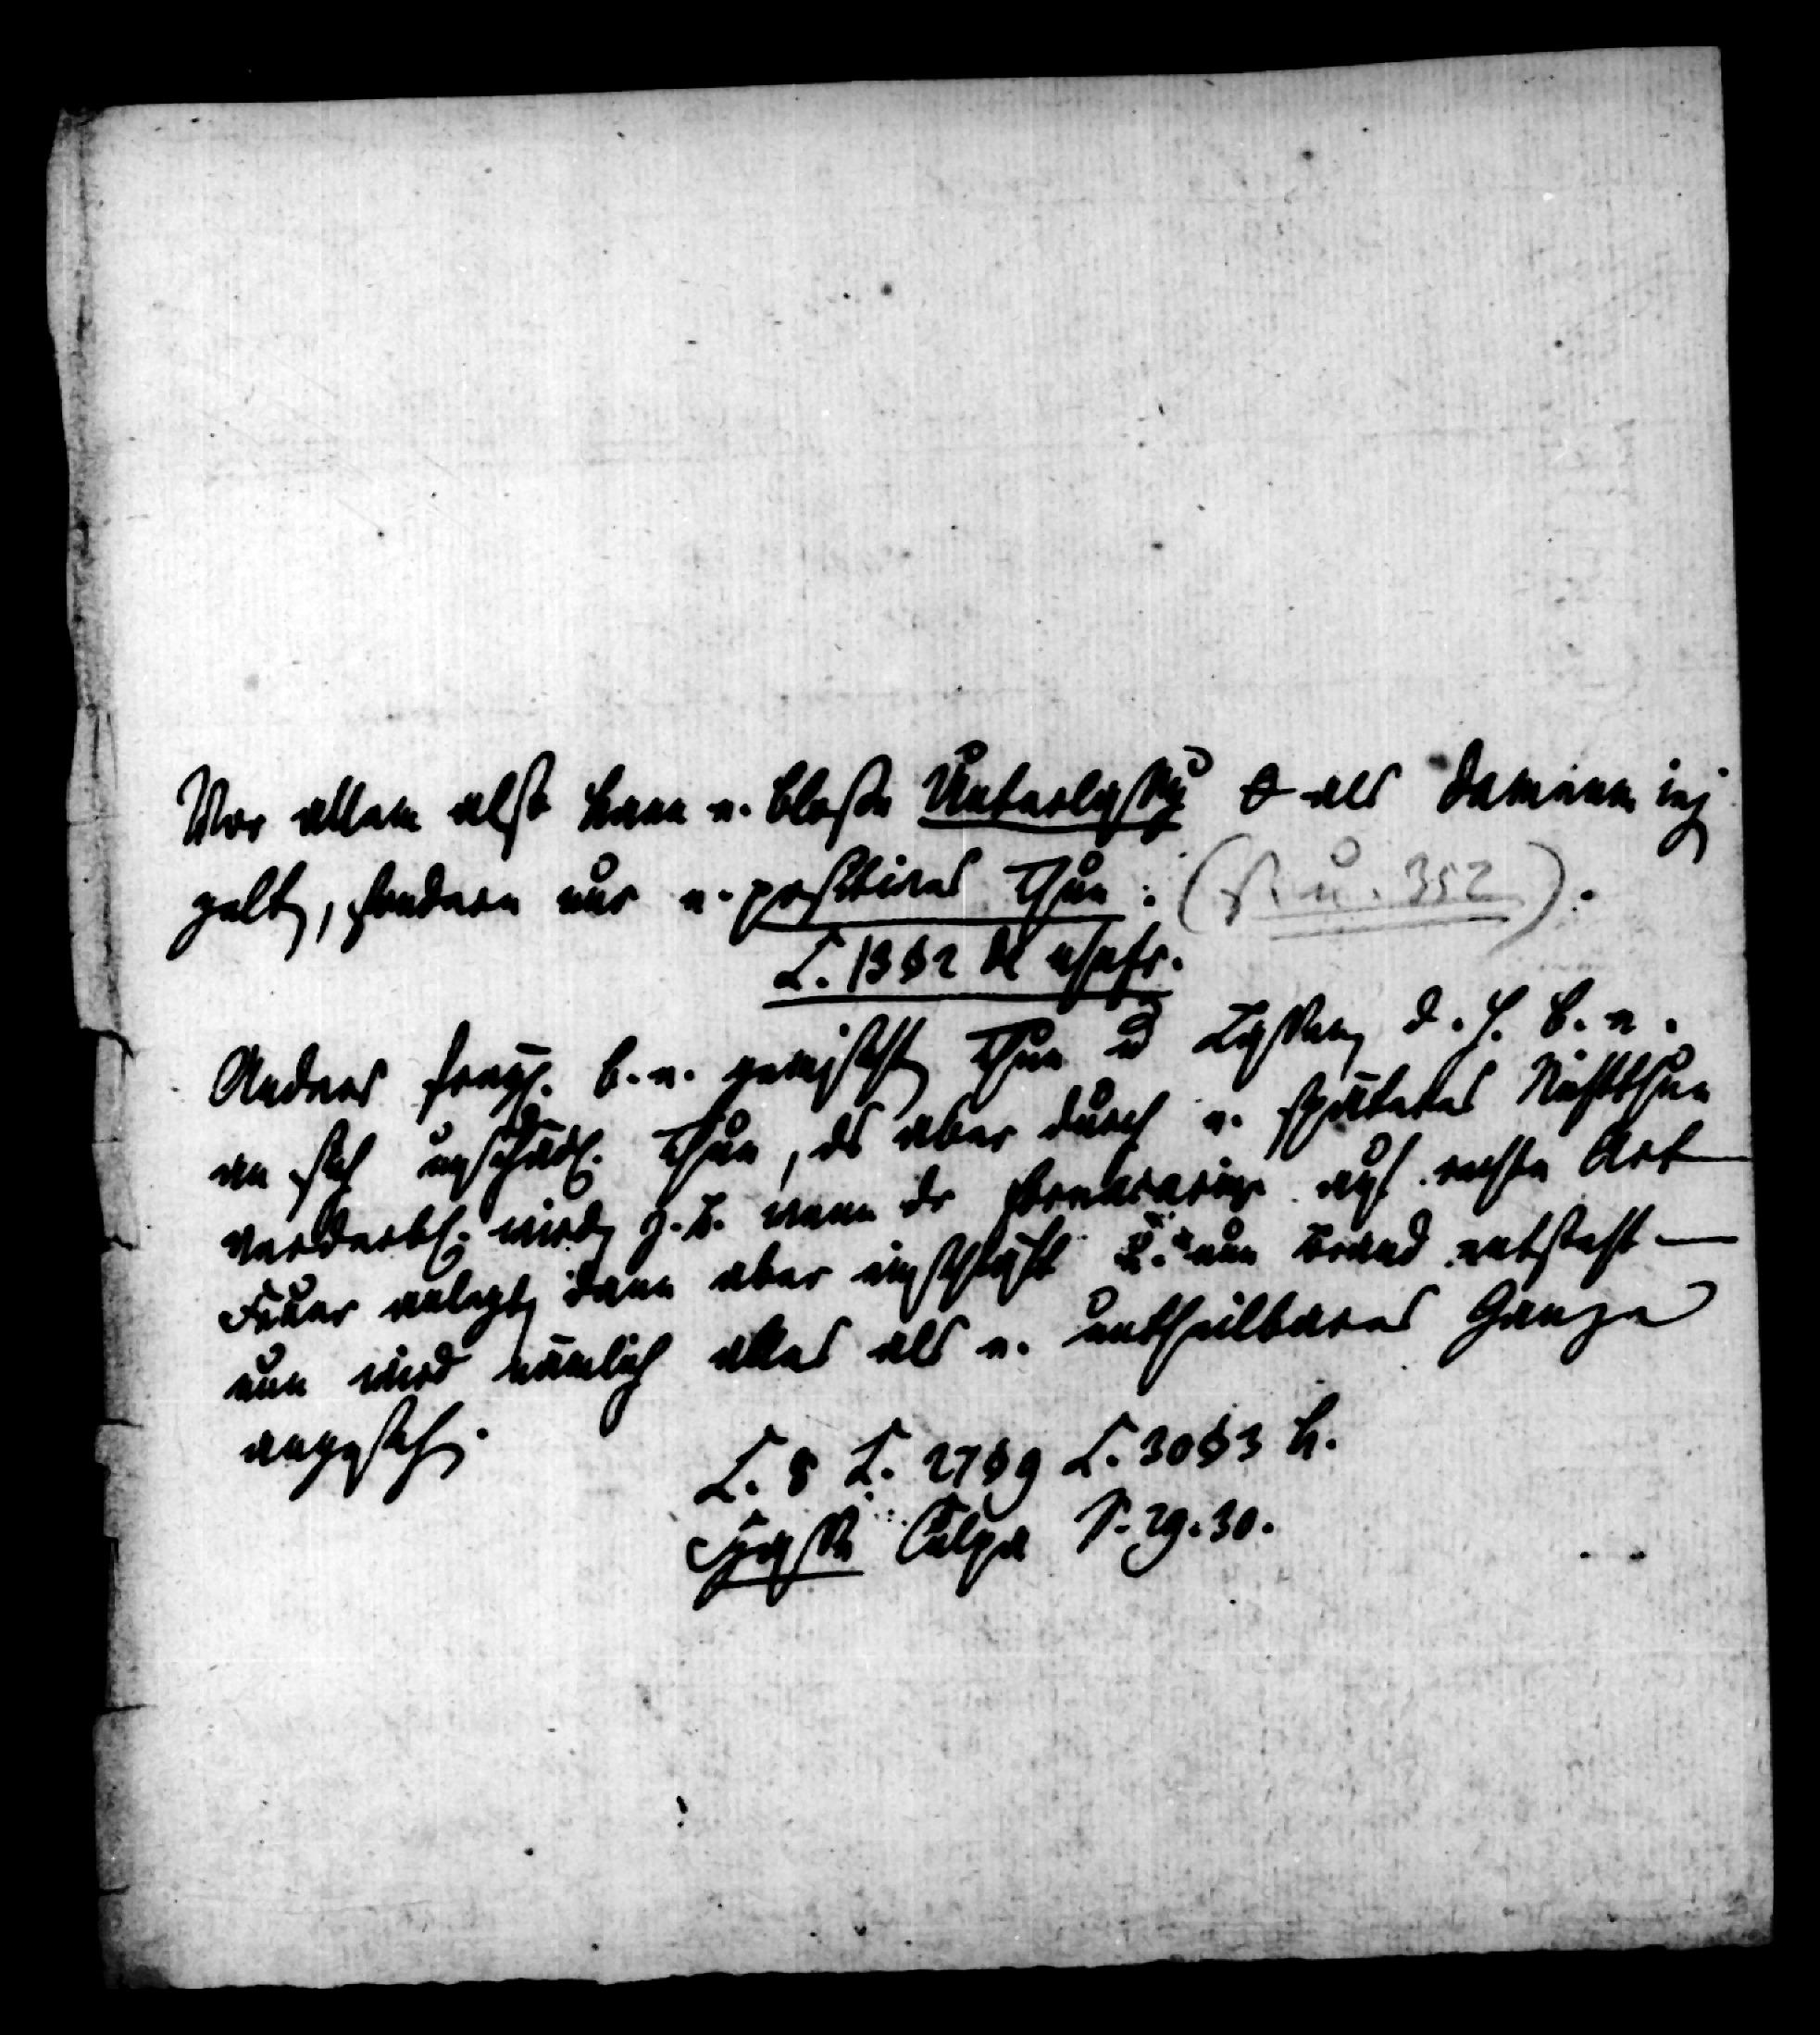 Vor allem also kann e. bloße Unterlassg θ als damnum inj
gelten, sondern nur e. positives Thun: (S. u. 352).
L. 13 § 2 de usufr.
Anders b. e. gemischten Thun u Lassen, d. h. b. e.
an sich unschädl. Thun, ds aber durch e. späteres Nichtthun
verderbl. wird, z. B. wenn dr fornacarius auf rechte Art
Feuer anlegt, dann aber einschläft u. nun Brand entsteht —
nun wird nämlich alles als e. untheilbares Ganze
angesehen.
L. 8 L. 27 § 9 L. 30 § 3 h.
Hasse Culpa S. 29. 30.